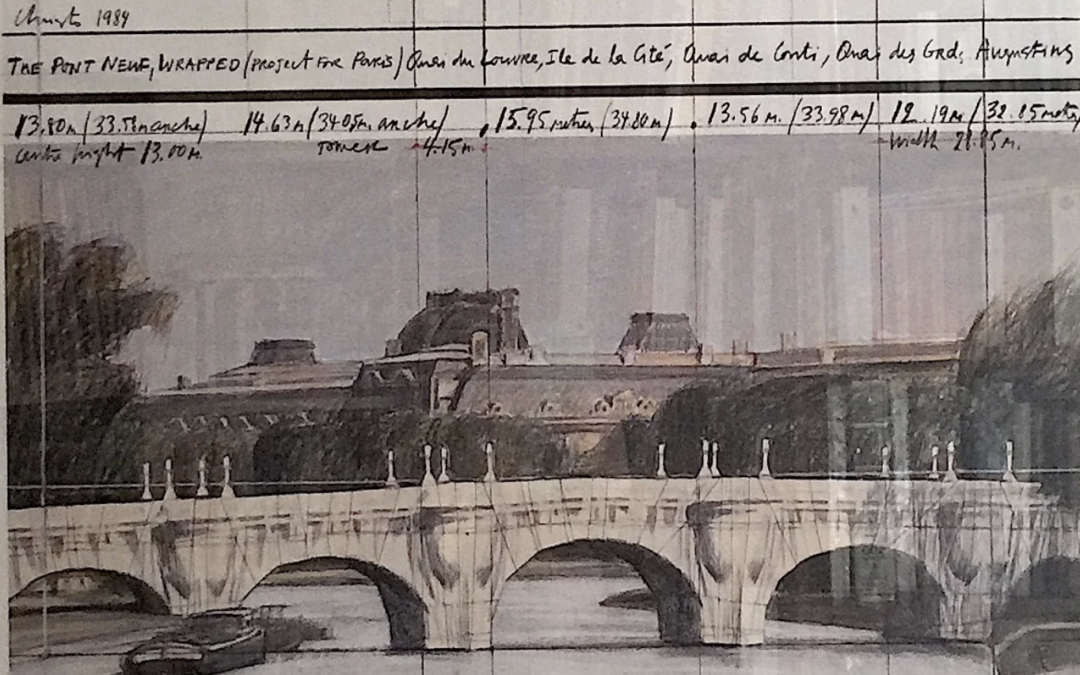 Christo 1984
THE PONT NEUF, WRAPPED (PROJECT FOR PARIS) Quai du Louvre, Ile de la Cité, Quai de Conti, Quai des Grd. Augustins
13.80m/(33.51m anche) 14.63m/(34.05m. anche/ 15.95 metres/(34.80m) 13.56 m./(33.98m) 12.19m/(32.85 metres
centre hight 13.00m. tower 4.15m. width 21.85m.